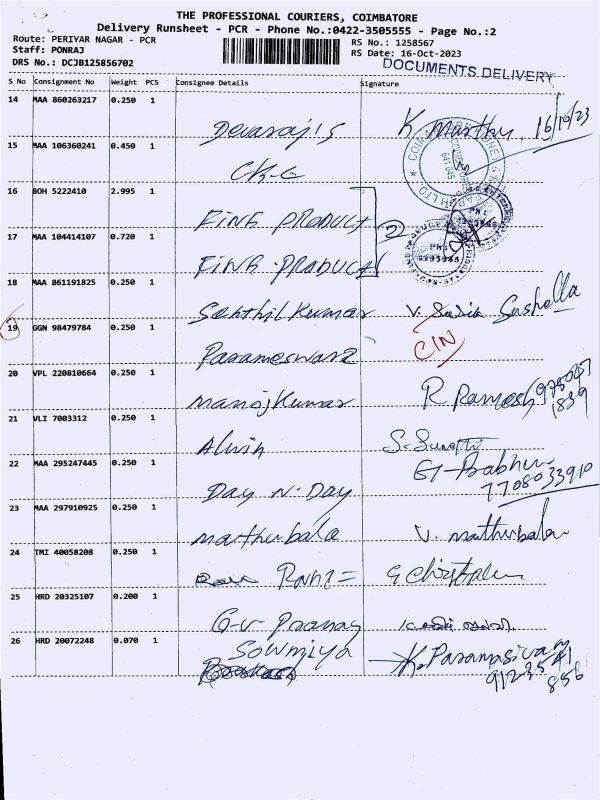 THE PROFESSIONAL COURIERS, COIMBATORE
Delivery Runsheet - PCR - Phone No.:0422-3505555 - Page No.:2
Route: PERIYAR NAGAR - PCR
RS No.: 1258567
Staff: PONRAJ
RS Date: 16-Oct-2023
DRS No.: DCJB125856702
DOCUMENTS DELIVERY
S No Consignment No Weight PCS Consignee Details Signature
14 MAA 860263217 0.250 1 Devaraj's 16/10/23
15 MAA 106360241 0.450 1
16 BOH 5222410 2.995 1 FINE PRODUCT
17 MAA 104414107 0.720 1 FINE PRODUCT 2
18 MAA 861191825 0.250 1 Senthil Kumar
19 GGN 98479784 0.250 1 CIN
20 VPL 220810664 0.250 1 Manoj Kumar R Ramesh
21 VLI 7003312 0.250 1 Alwin
22 MAA 295247445 0.250 1 Day N Day 7708033910
23 MAA 297910925 0.250 1 Mathubala V. Mathubala
24 TMI 40058208 0.250 1
25 HRD 20325107 0.200 1 G.V Pranav
26 HRD 20072248 0.070 1 Sowmiya K. Paramasivam